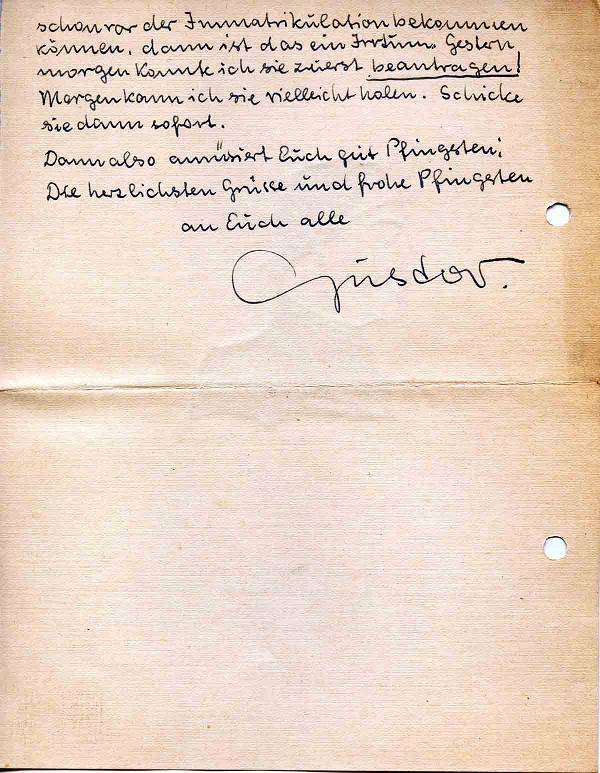 schon vor der Immatrikulation bekommen
können, dann ist das ein Irrtum. Gestern
morgen konnte ich sie zuerst beantragen!
Morgen kann ich sie vielleicht holen. Schicke
sie dann sofort.
Dann also amüsiert Euch gut Pfingsten;
Die herzlichsten Grüsse und frohe Pfingsten
an Euch alle
Gustav.